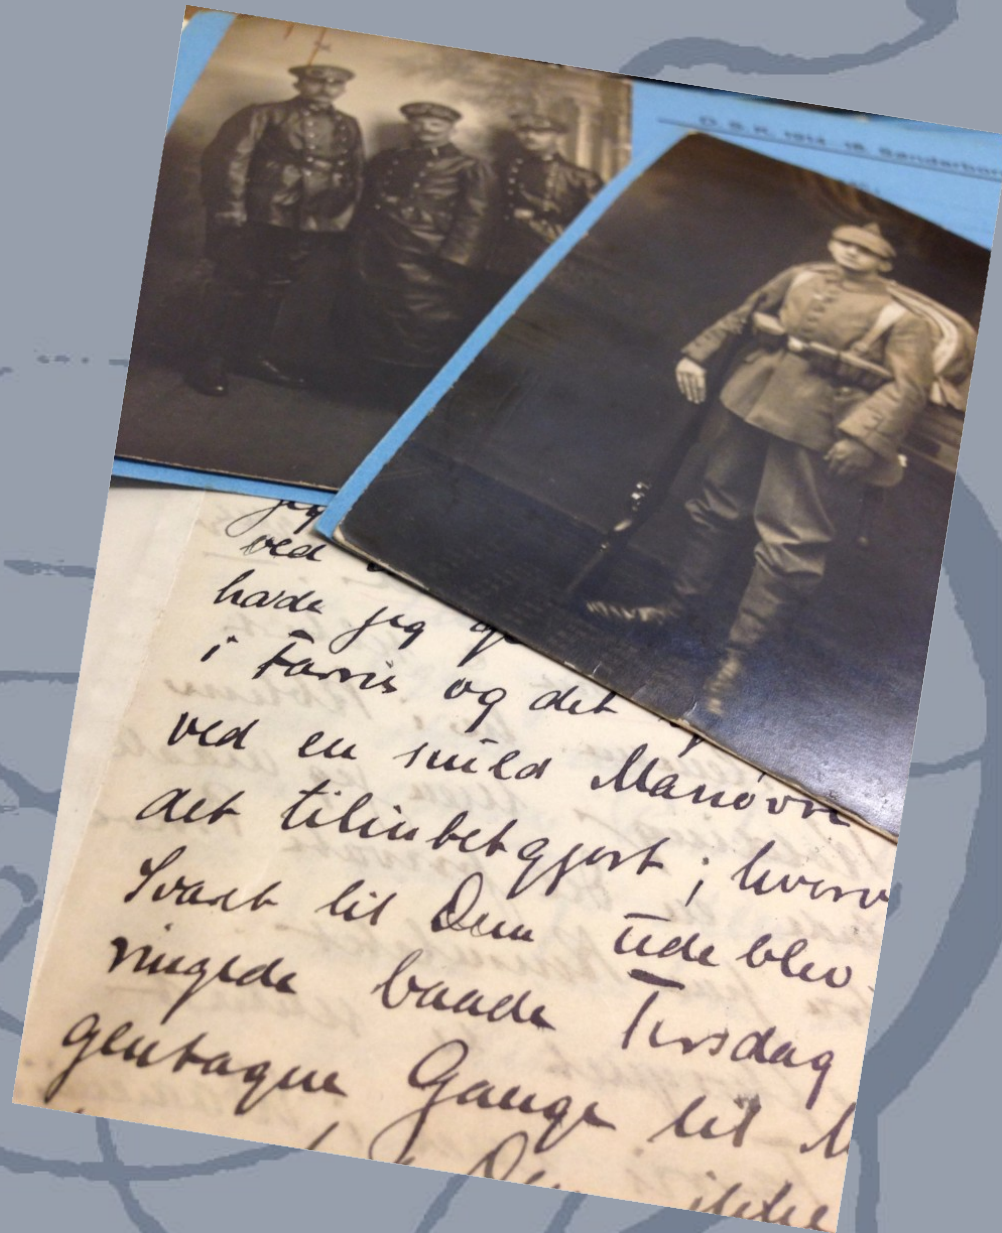 D. S. K. 1914-18. Sønderbor
jeg
ved
havde jeg
i Farris og det
ved en snild Manøvre
det tilintetgjort; hvorv
Svaret til Dem udeblev.
ringede baade Tirsdag
gentagne Gange til
ikke